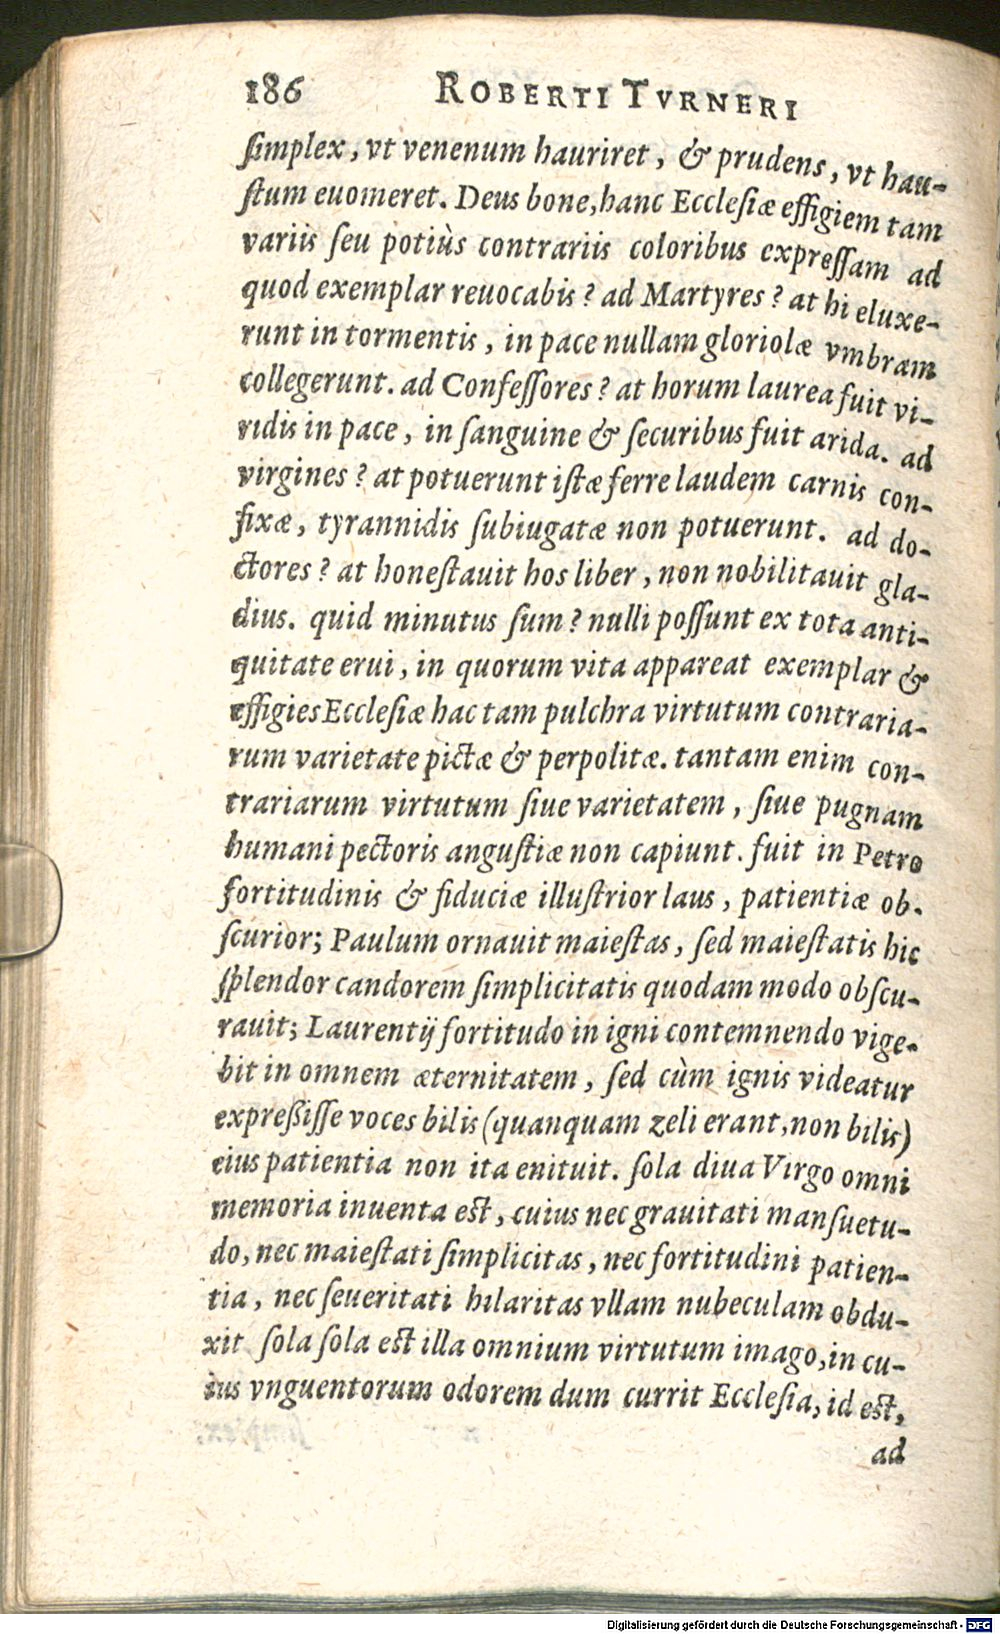 186 ROBERTI TVRNERI
ſimplex, vt venenum hauriret, & prudens, vt hau-
ſtum euomeret. Deus bone, hanc Eccleſiæ effigiem tam
variis ſeu potiùs contrariis coloribus expreſſam ad
quod exemplar reuocabis? ad Martyres? at hi eluxe-
runt in tormentis, in pace nullam gloriolæ vmbram
collegerunt. ad Confeſſores? at horum laurea fuit vi-
ridis in pace, in ſanguine & ſecuribus fuit arida. ad
virgines? at potuerunt iſtæ ferre laudem carnis con-
fixæ, tyrannidis ſubiugatæ non potuerunt. ad do-
ctores? at honeſtauit hos liber, non nobilitauit gla-
dius. quid minutus ſum? nulli poſſunt ex tota anti-
quitate erui, in quorum vita appareat exemplar &
effigies Eccleſiæ hac tam pulchra virtutum contraria-
rum varietate pictæ & perpolitæ. tantam enim con-
trariarum virtutum ſiue varietatem, ſiue pugnam
humani pectoris anguſtiæ non capiunt. fuit in Petro
fortitudinis & fiduciæ illuſtrior laus, patientiæ ob-
ſcurior; Paulum ornauit maieſtas, ſed maieſtatis hic
ſplendor candorem ſimplicitatis quodam modo obſcu-
rauit; Laurentij fortitudo in igni contemnendo vige-
bit in omnem æternitatem, ſed cùm ignis videatur
expreßiſſe voces bilis (quanquam zeli erant, non bilis)
eius patientia non ita enituit. ſola diua Virgo omni
memoria inuenta eſt, cuius nec grauitati manſuetu-
do, nec maieſtati ſimplicitas, nec fortitudini patien-
tia, nec ſeueritati hilaritas vllam nubeculam obdu-
xit ſola ſola eſt illa omnium virtutum imago, in cu-
ius vnguentorum odorem dum currit Eccleſia, id eſt,
ad
Digitalisierung gefördert durch die Deutsche Forschungsgemeinschaft - DFG